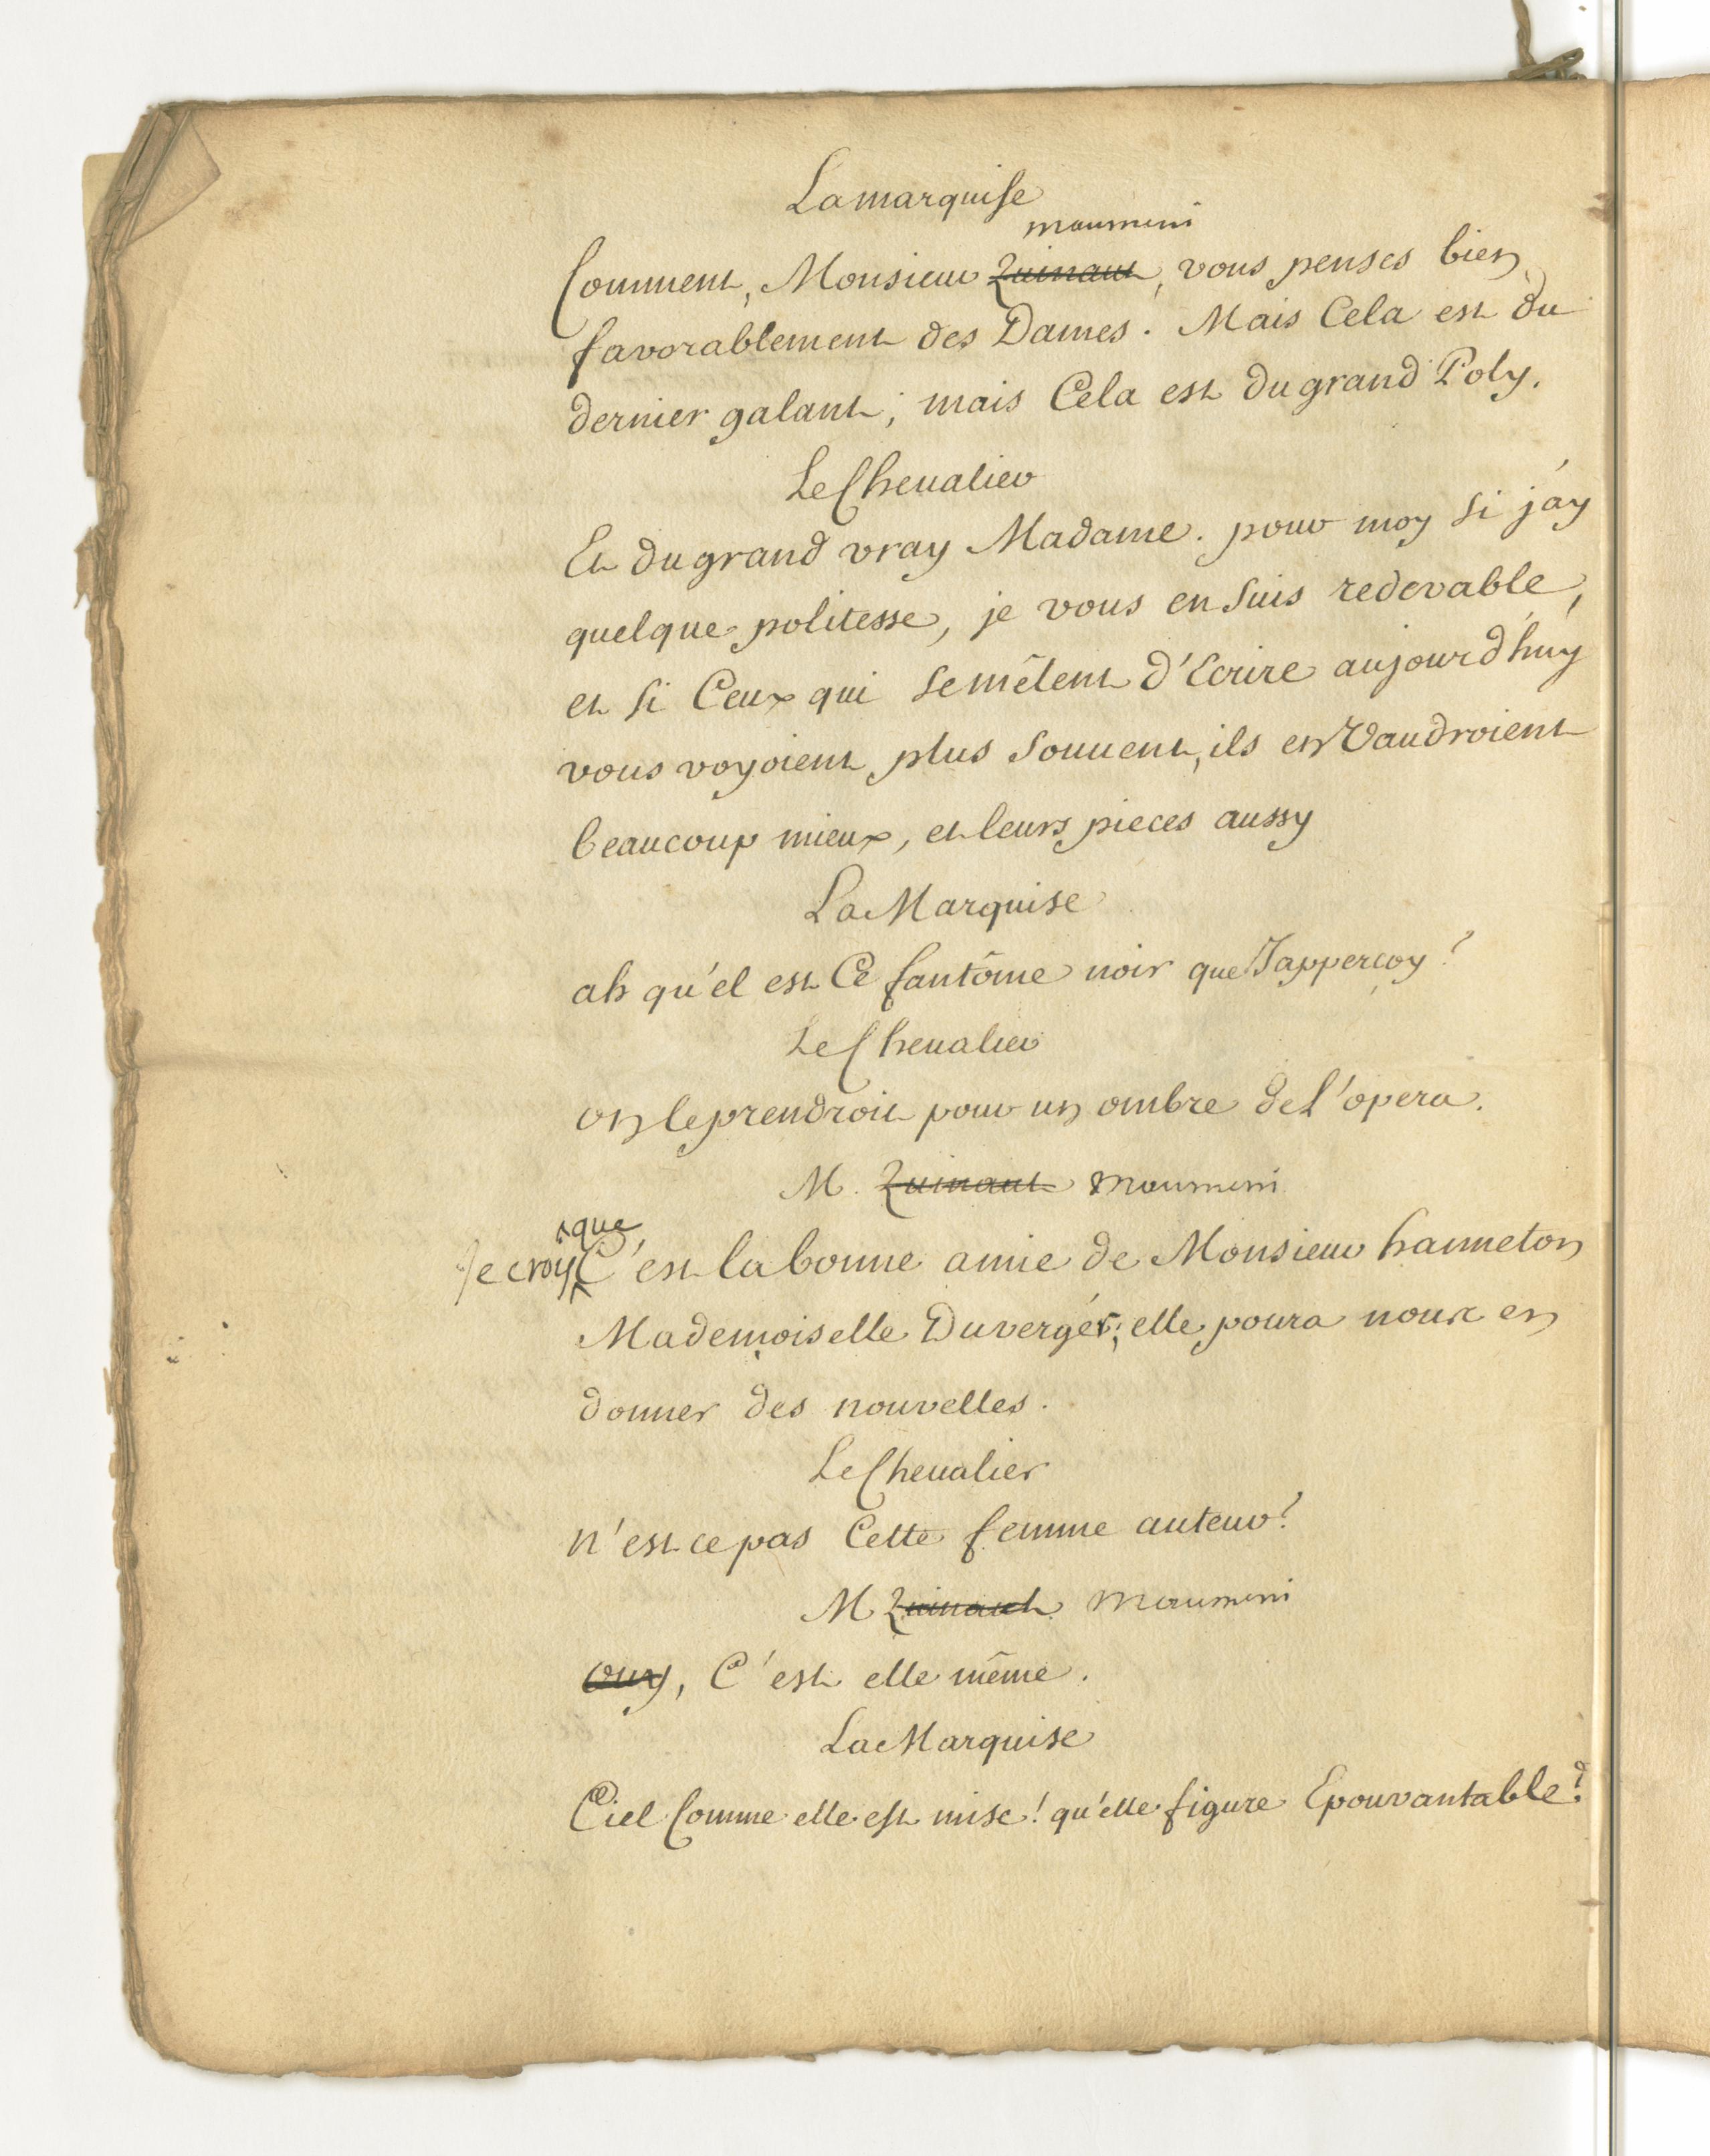 La marquise
moumeni
Comment, Monsieur Quinaut, vous penses bien
favorablement des Dames. Mais Cela est du
dernier galant; mais Cela est du grand Poly.
Le Cheualier
Et du grand vray Madame. pour moy si j'ay
quelque politesse, je vous en suis redevable,
et si Ceux qui se mêlent d'Ecrire aujourd'huy
vous voyoient plus souuent, ils en Vaudroient
beaucoup mieux, et leurs pieces aussy
La Marquise
ah qu'el est Ce fantôme noir que J'apperçoy?
Le Cheualier
on le prendroit pour un ombre de l'opera.
M. Quinaut moumeni
que
Je croy C'est la bonne amie de Monsieur hanneton
Mademoiselle Duverger; elle poura nous en
donner des nouvelles.
Le Cheualier
n'est ce pas Cette femme auteur?
M Quinaut moumeni
Ouy, C'est elle même.
La Marquise
Ciel Comme elle est mise! qu'elle figure Epouvantable?